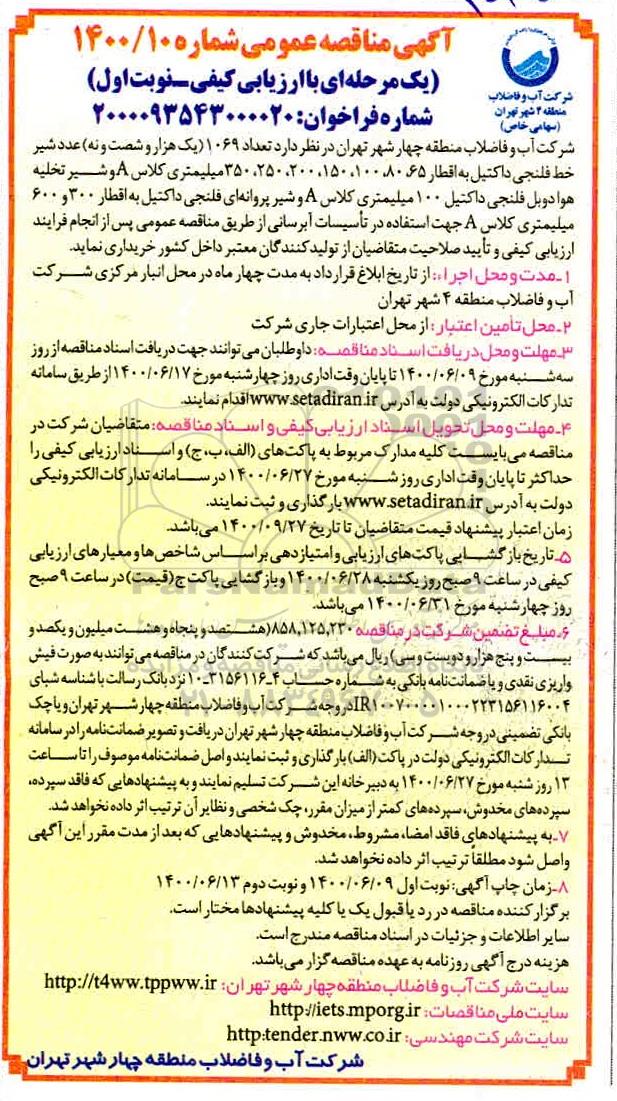 آگهی مناقصه عمومی شماره ۱۴۰۰/۱۰
(یک مرحله‌ای با ارزیابی کیفی ـ نوبت اول)
شماره فراخوان: ۲۰۰۰۰۹۳۵۴۳۰۰۰۰۲۰
شرکت آب و فاضلاب
منطقه ۴ شهر تهران
(سهامی خاص)
شرکت آب و فاضلاب منطقه چهار شهر تهران در نظر دارد تعداد ۱۰۶۹ (یک هزار و شصت و نه) عدد شیر
خط فلنجی داکتیل به اقطار ۶۵، ۸۰، ۱۰۰، ۱۵۰، ۲۰۰، ۲۵۰، ۳۵۰ میلیمتری کلاس A و شیر تخلیه
هوا دوبل فلنجی داکتیل ۱۰۰ میلیمتری کلاس A و شیر پروانه‌ای فلنجی داکتیل به اقطار ۳۰۰ و ۶۰۰
میلیمتری کلاس A جهت استفاده در تأسیسات آبرسانی از طریق مناقصه عمومی پس از انجام فرایند
ارزیابی کیفی و تأیید صلاحیت متقاضیان از تولیدکنندگان معتبر داخل کشور خریداری نماید.
۱ـ مدت و محل اجراء: از تاریخ ابلاغ قرارداد به مدت چهار ماه در محل انبار مرکزی شرکت
آب و فاضلاب منطقه ۴ شهر تهران
۲ـ محل تأمین اعتبار: از محل اعتبارات جاری شرکت
۳ـ مهلت و محل دریافت اسناد مناقصه: داوطلبان می‌توانند جهت دریافت اسناد مناقصه از روز
سه‌شنبه مورخ ۱۴۰۰/۰۶/۰۹ تا پایان وقت اداری روز چهارشنبه مورخ ۱۴۰۰/۰۶/۱۷ از طریق سامانه
تدارکات الکترونیکی دولت به آدرس www.setadiran.ir اقدام نمایند.
۴ـ مهلت و محل تحویل اسناد ارزیابی کیفی و اسناد مناقصه: متقاضیان شرکت در
مناقصه می‌بایست کلیه مدارک مربوط به پاکت‌های (الف، ب، ج) و اسناد ارزیابی کیفی را
حداکثر تا پایان وقت اداری روز شنبه مورخ ۱۴۰۰/۰۶/۲۷ در سامانه تدارکات الکترونیکی
دولت به آدرس www.setadiran.ir بارگذاری و ثبت نمایند.
زمان اعتبار پیشنهاد قیمت متقاضیان تا تاریخ ۱۴۰۰/۰۹/۲۷ می‌باشد.
۵ـ تاریخ بازگشایی پاکت‌های ارزیابی و امتیازدهی براساس شاخص‌ها و معیارهای ارزیابی
کیفی در ساعت ۹ صبح روز یکشنبه ۱۴۰۰/۰۶/۲۸ و بازگشایی پاکت ج (قیمت) در ساعت ۹ صبح
روز چهارشنبه مورخ ۱۴۰۰/۰۶/۳۱ می‌باشد.
۶ـ مبلغ تضمین شرکت در مناقصه ۸۵۸,۱۲۵,۲۳۰ (هشتصد و پنجاه و هشت میلیون و یکصد و
بیست و پنج هزار و دویست و سی) ریال می‌باشد که شرکت‌کنندگان در مناقصه می‌توانند به صورت فیش
واریزی نقدی و یا ضمانت‌نامه بانکی به شماره حساب ۴ـ۳۱۵۶۱۱۶ـ۱۰ نزد بانک رسالت با شناسه شبای
در وجه شرکت آب و فاضلاب منطقه چهار شهر تهران و یا چک
بانکی تضمینی در وجه شرکت آب و فاضلاب منطقه چهار شهر تهران دریافت و تصویر ضمانت‌نامه را در سامانه
تدارکات الکترونیکی دولت در پاکت (الف) بارگذاری و ثبت نمایند و اصل ضمانت‌نامه موصوف را تا ساعت
۱۳ روز شنبه مورخ ۱۴۰۰/۰۶/۲۷ به دبیرخانه این شرکت تسلیم نمایند و به پیشنهادهایی که فاقد سپرده،
سپرده‌های مخدوش، سپرده‌های کمتر از میزان مقرر، چک شخصی و نظایر آن ترتیب اثر داده نخواهد شد.
۷ـ به پیشنهادهای فاقد امضا، مشروط، مخدوش و پیشنهادهایی که بعد از مدت مقرر این آگهی
واصل شود مطلقاً ترتیب اثر داده نخواهد شد.
۸ـ زمان چاپ آگهی: نوبت اول ۱۴۰۰/۰۶/۰۹ و نوبت دوم ۱۴۰۰/۰۶/۱۳
برگزارکننده مناقصه در رد یا قبول یک یا کلیه پیشنهادها مختار است.
سایر اطلاعات و جزئیات در اسناد مناقصه مندرج است.
هزینه درج آگهی روزنامه به عهده مناقصه‌گزار می‌باشد.
سایت شرکت آب و فاضلاب منطقه چهار شهر تهران: http://t4ww.tppww.ir
سایت ملی مناقصات: http://iets.mporg.ir
سایت شرکت مهندسی: http:tender.nww.co.ir
شرکت آب و فاضلاب منطقه چهار شهر تهران